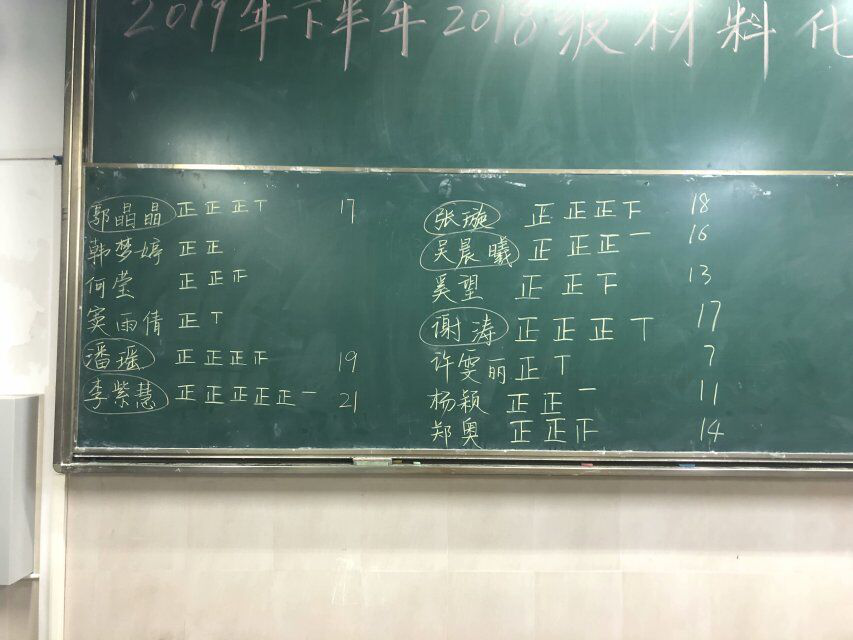 2019年下半年2018级材料化
鄢晶晶 正正正丅 17
韩梦婷 正正
何莹 正正正
窦雨倩 正丅
潘瑶 正正正正 19
李紫慧 正正正正正一 21
张璇 正正正下 18
吴晨曦 正正正一 16
奚望 正正下 13
谢涛 正正正丅 17
许雯丽 正丅 7
杨颖 正正一 11
郑奥 正正正 14